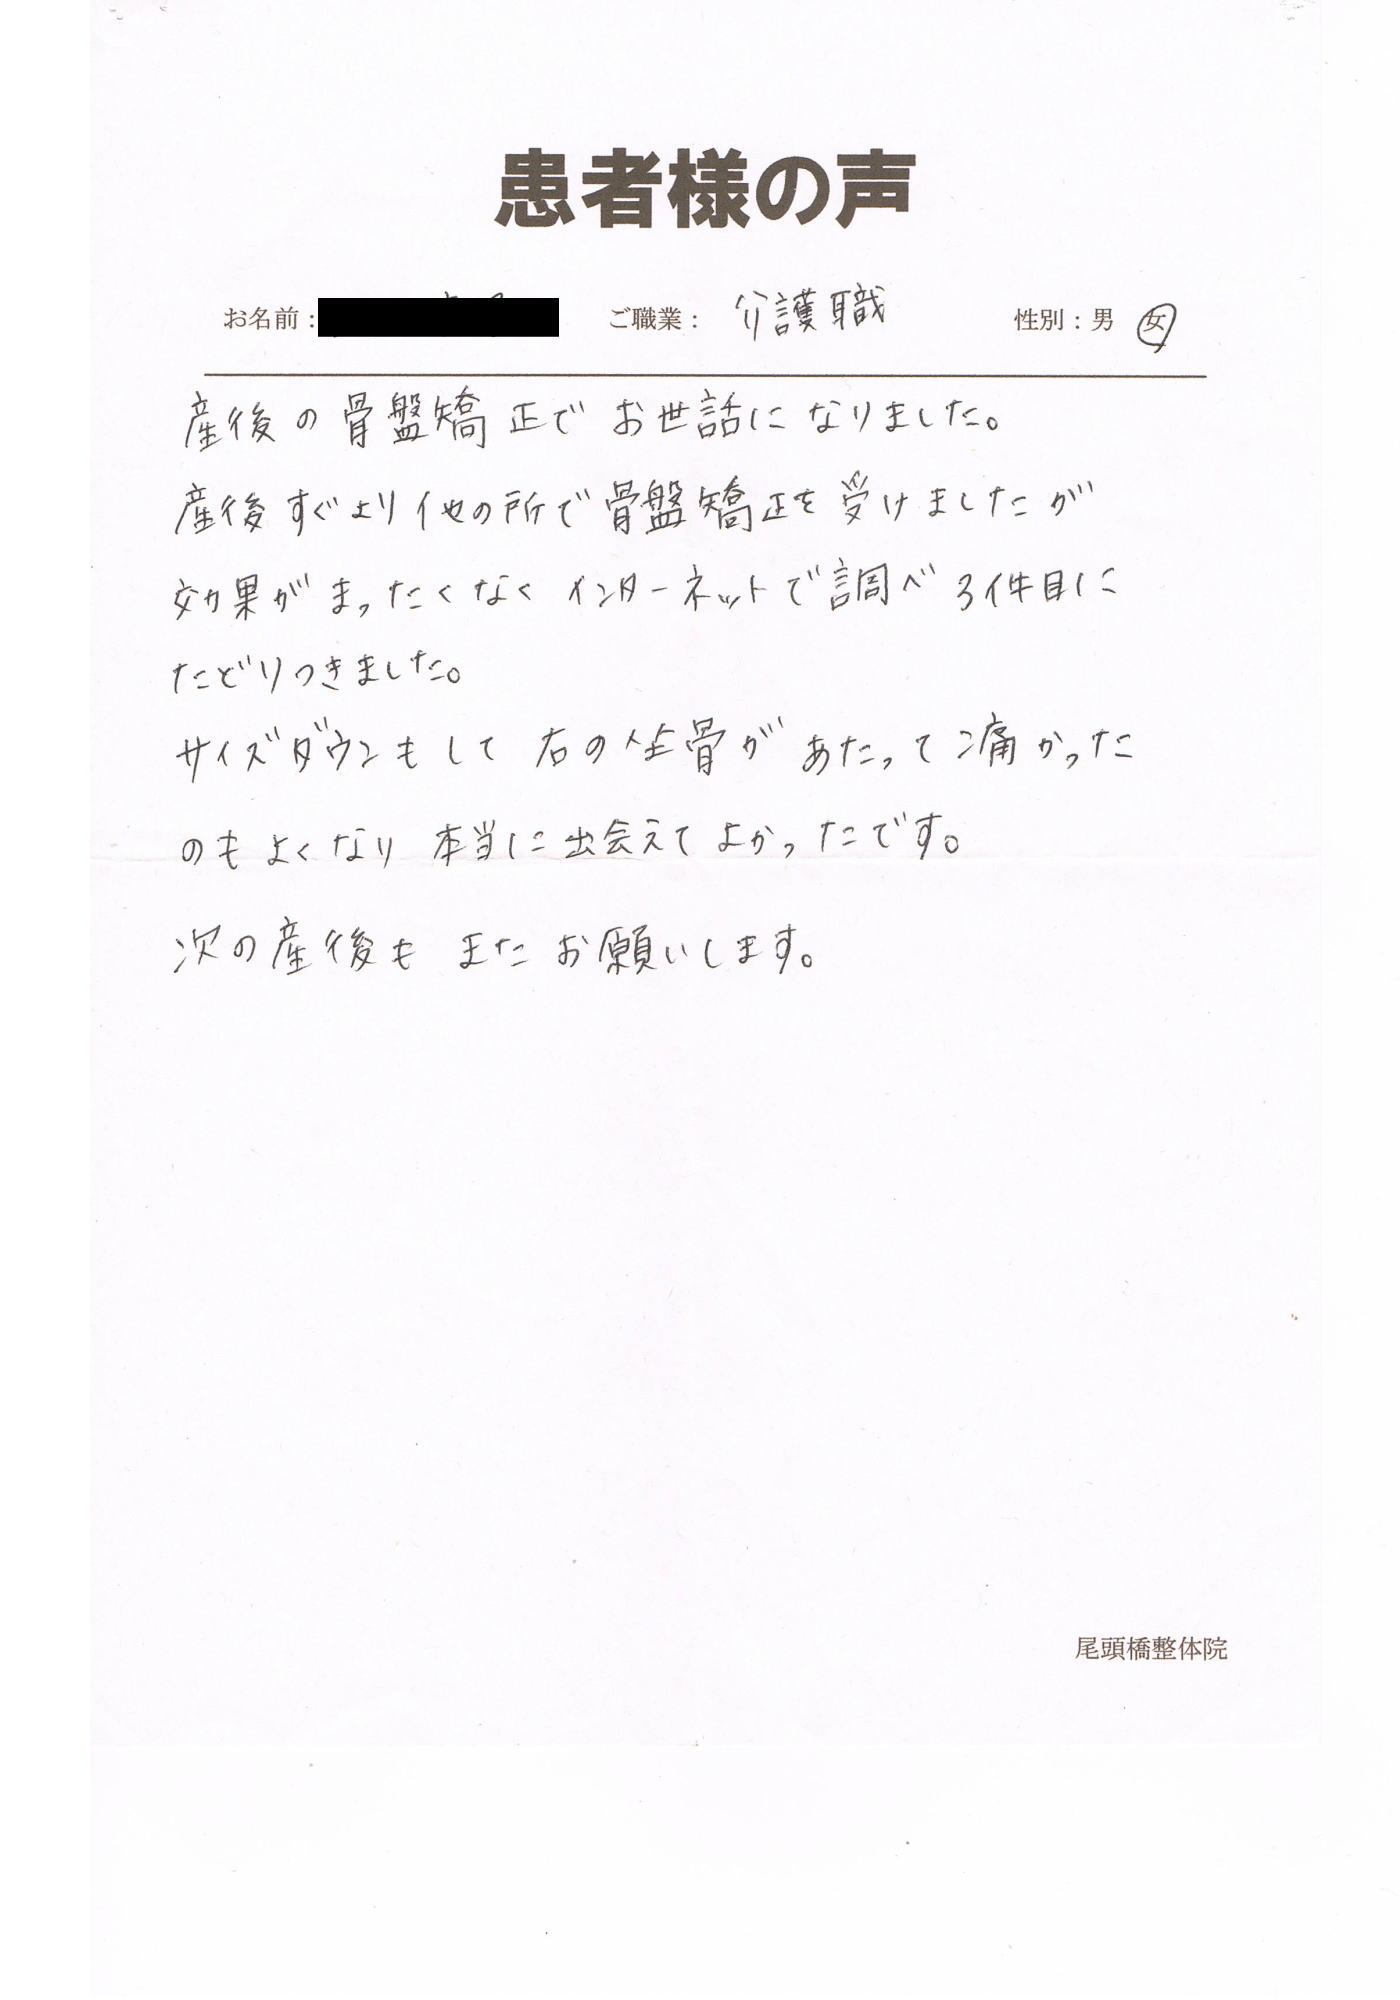 患者様の声
お名前： ご職業： 介護職 性別：男 女
産後の骨盤矯正で お世話に なりました。
産後すぐより他の所で骨盤矯正を受けましたが
効果がまったくなく インターネットで調べ3件目に
たどりつきました。
サイズダウンもして 右の坐骨が あたって痛かった
のも よくなり 本当に出会えて よかったです。
次の産後も また お願いします。
尾頭橋整体院